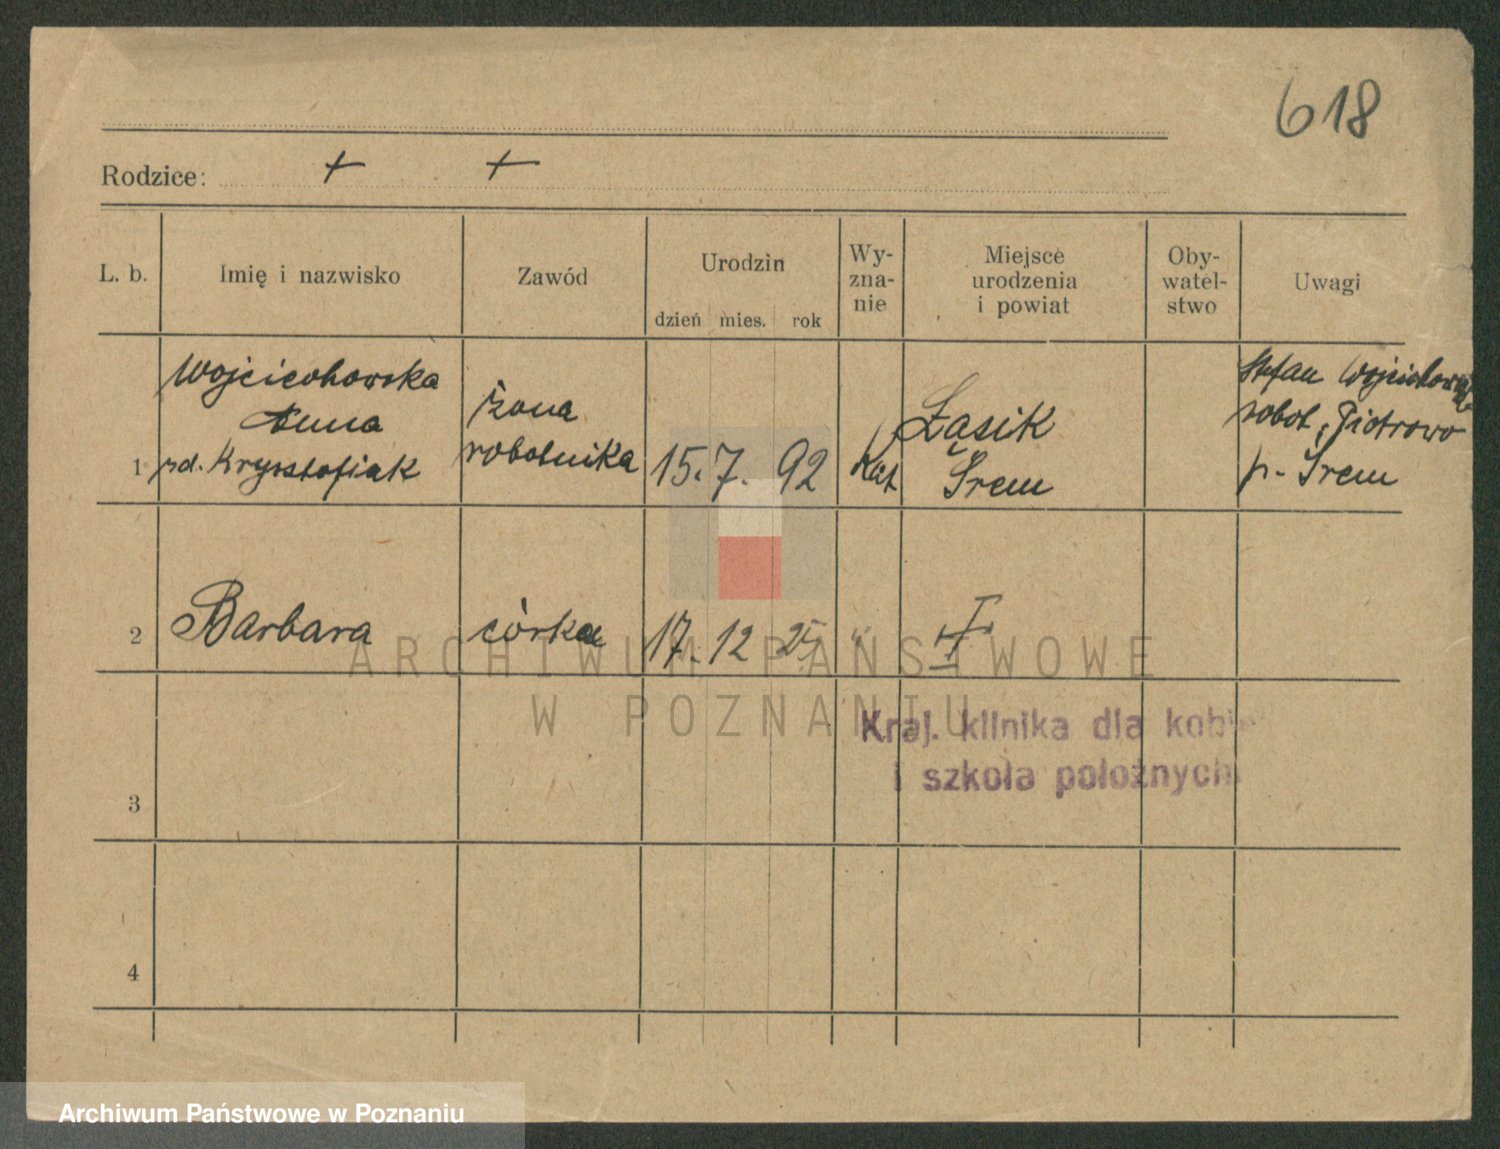 618
Rodzice: + +
L. b. Imię i nazwisko Zawód Urodzin dzień mies. rok Wy-zna-nie Miejsce urodzenia i powiat Oby-watel-stwo Uwagi
Wojciechowska
Anna
1 rd. Krysztofiak
żona
robotnika
15. 7. 92
Kat
Łasik
Śrem
Stefan
robot, Piotrowo
p. Śrem
2 Barbara córka 17. 12 25 "
ARCHIWUM PAŃSTWOWE
W POZNANIU
Kraj. klinika dla kobiet
i szkoła położnych
3
4
Archiwum Państwowe w Poznaniu